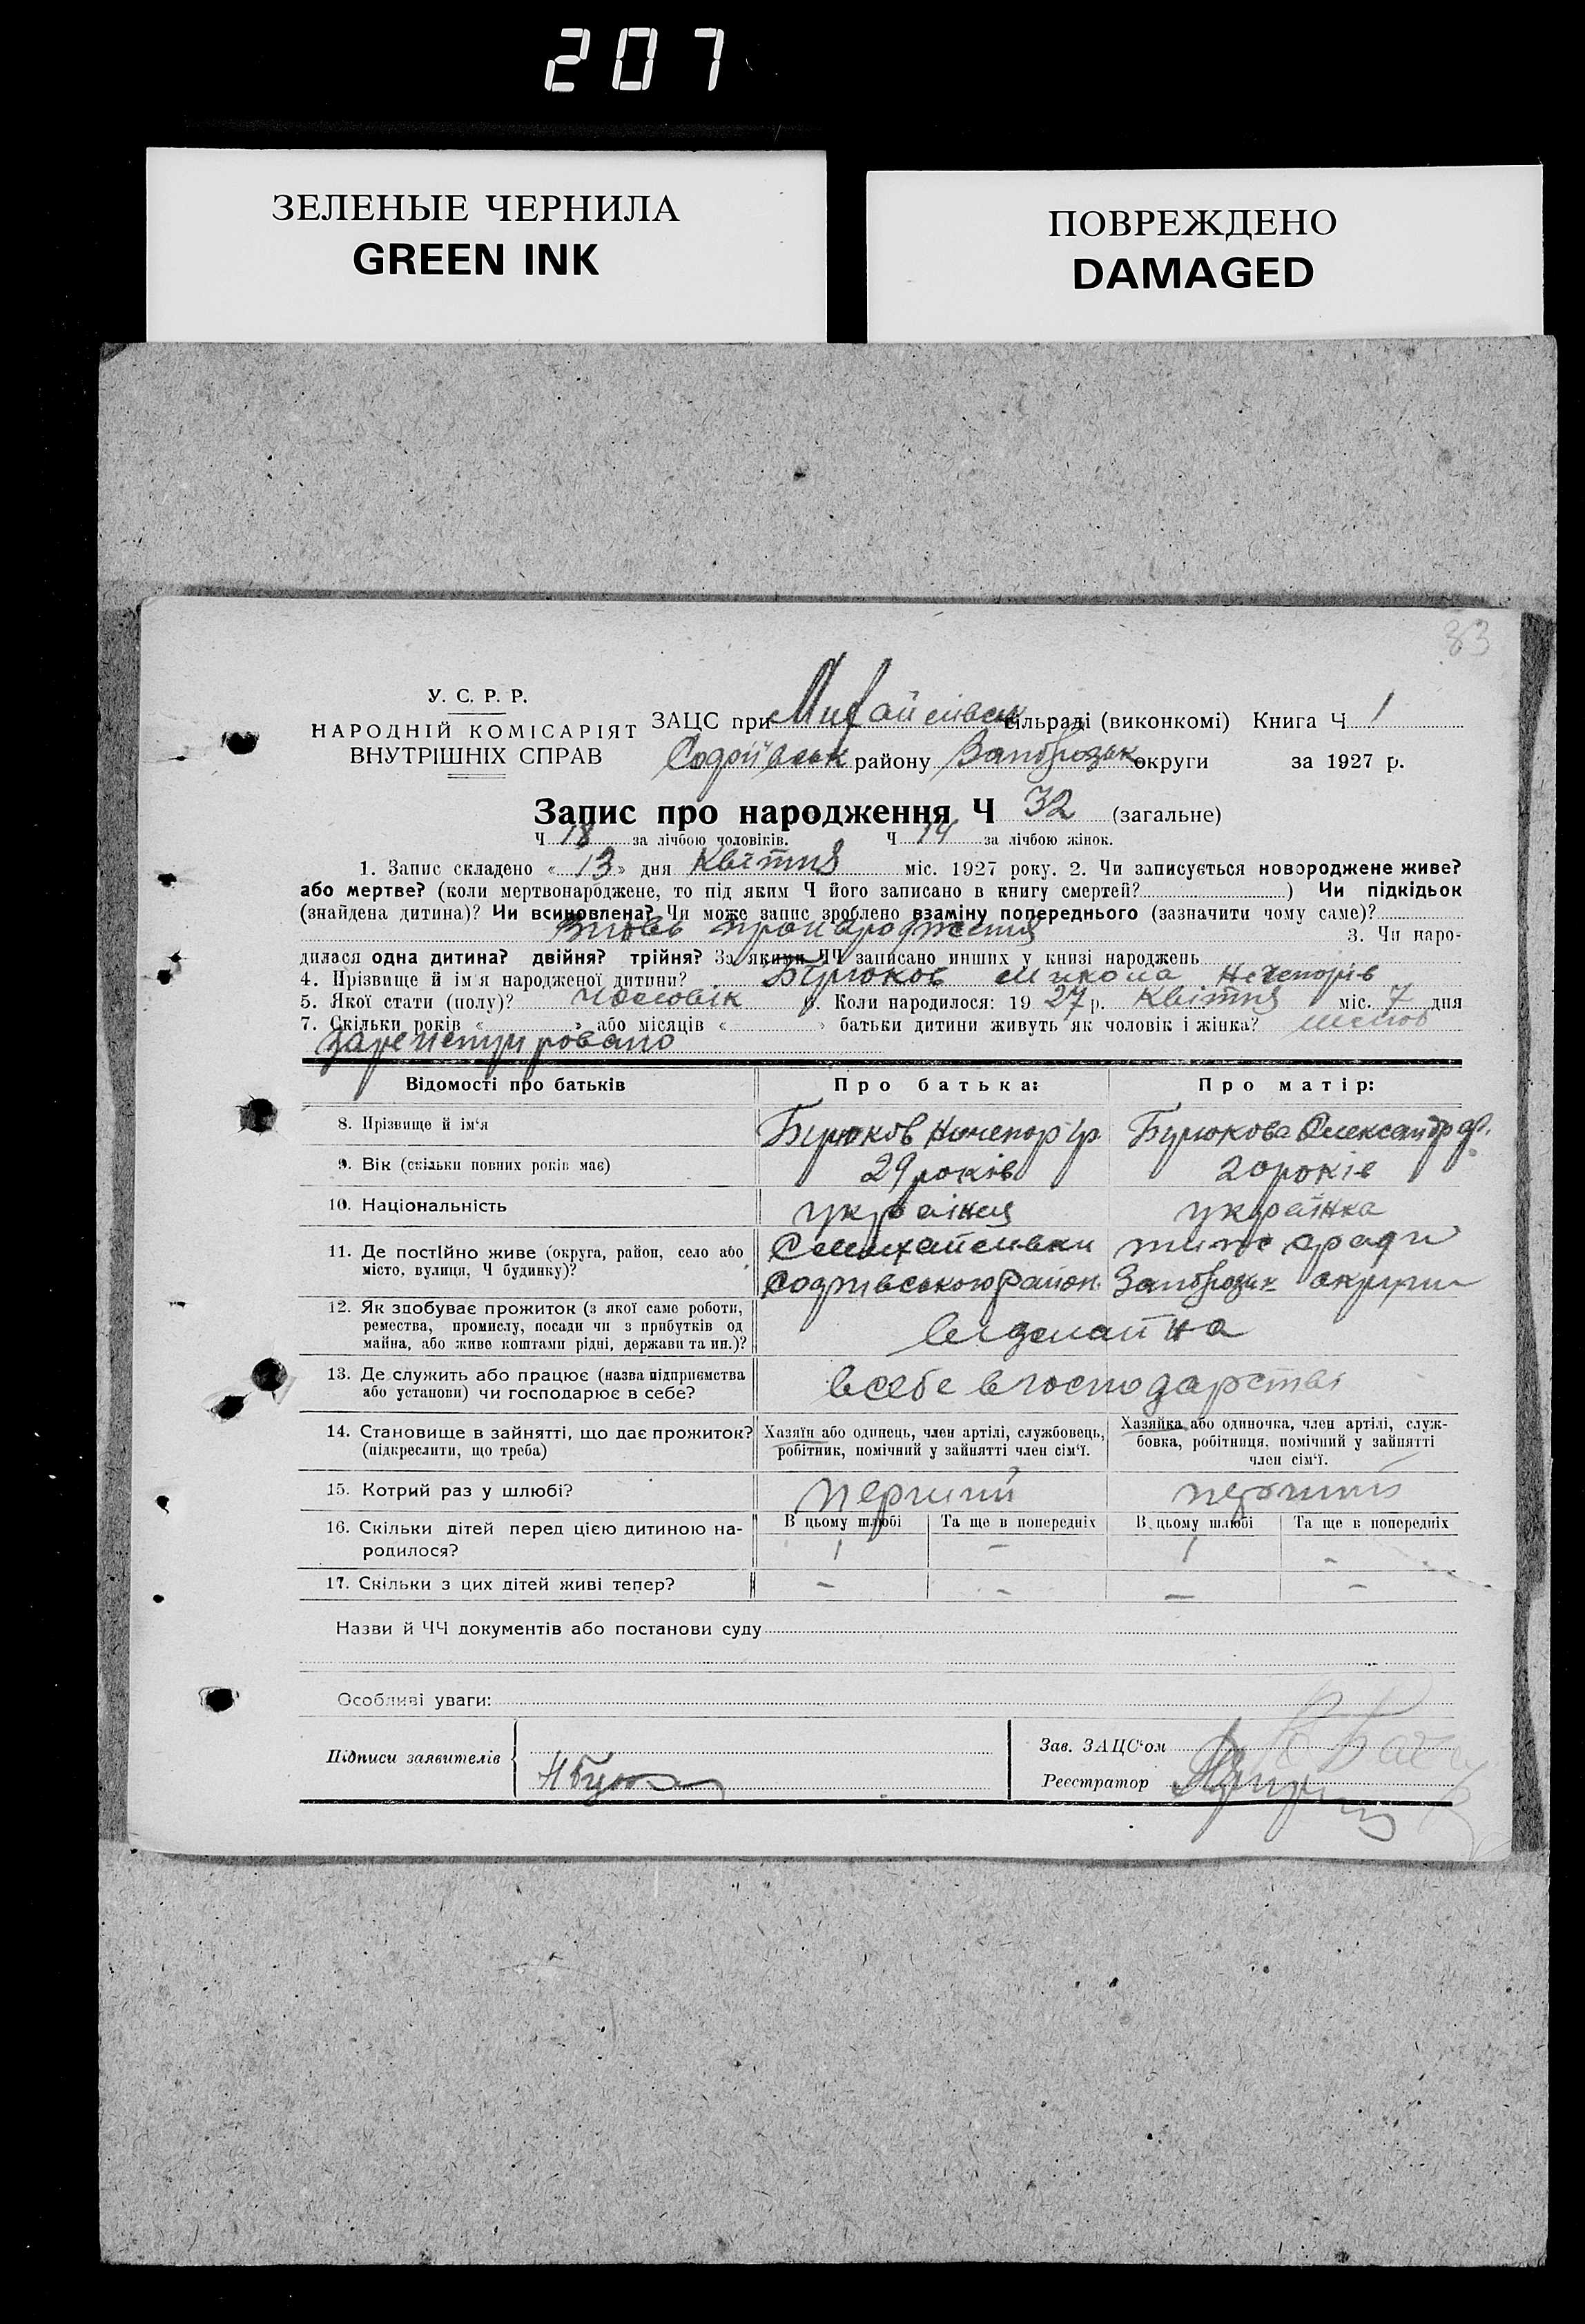 207
ЗЕЛЕНЫЕ ЧЕРНИЛА
GREEN INK
ПОВРЕЖДЕНО
DAMAGED
33
У. С. Р. Р.
НАРОДНІЙ КОМІСАРІЯТ
ВНУТРІШНІХ СПРАВ
ЗАЦС при Михайлівськ сільраді (виконкомі) Книга Ч 1
району Запорізьк округи за 1927 р.
Запис про народження Ч 32 (загальне)
Ч 18 за лічбою чоловіків. Ч 14 за лічбою жінок.
1. Запис складено « 13 » дня Квітня міс. 1927 року. 2. Чи записується новороджене живе?
або мертве? (коли мертвонароджене, то під яким Ч його записано в книгу смертей? ) Чи підкідьок
(знайдена дитина)? Чи всиновлена? Чи може запис зроблено взаміну попереднього (зазначити чому саме)?
3. Чи наро-
дилася одна дитина? двійня? трійня? За якими ЧЧ записано инших у книзі народжень
4. Прізвище й ім'я народженої дитини? Бірюков Микола Нечепорів
5. Якої стати (полу)? Чоловік 6. Коли народилося: 19 27 р. Квітня міс. 7 дня
7. Скільки років « » або місяців « » батьки дитини живуть як чоловік і жінка? шлюб
зарегистрировано
Відомості про батьків
Про батька:
Про матір:
8. Прізвище й ім'я
Бирюков Ничепор Гр.
Бирюкова Олександра Ф.
9. Вік (скільки повних років має)
29 років
20 років
10. Національність
українец
українка
11. Де постійно живе (округа, район, село або
місто, вулиця, Ч будинку)?
С Михайливки
район. Запорізьк округи
12. Як здобуває прожиток (з якої саме роботи,
ремества, промислу, посади чи з прибутків од
майна, або живе коштами рідні, держави та ин.)?
13. Де служить або працює (назва підприємства
або установи) чи господарює в себе?
в себе в господарстві
14. Становище в зайнятті, що дає прожиток?
(підкреслити, що треба)
Хазяїн або одинець, член артілі, службовець,
робітник, помічний у зайнятті член сім'ї.
Хазяйка або одиночка, член артілі, служ-
бовка, робітниця, помічний у зайнятті
член сім'ї.
15. Котрий раз у шлюбі?
перший
перший
16. Скільки дітей перед цією дитиною на-
родилося?
В цьому шлюбі
Та ще в попередніх
В цьому шлюбі
Та ще в попередніх
1 – 1 –
17. Скільки з цих дітей живі тепер?
– – – –
Назви й ЧЧ документів або постанови суду
Особливі уваги:
Підписи заявителів
Зав. ЗАЦС'ом
Реєстратор